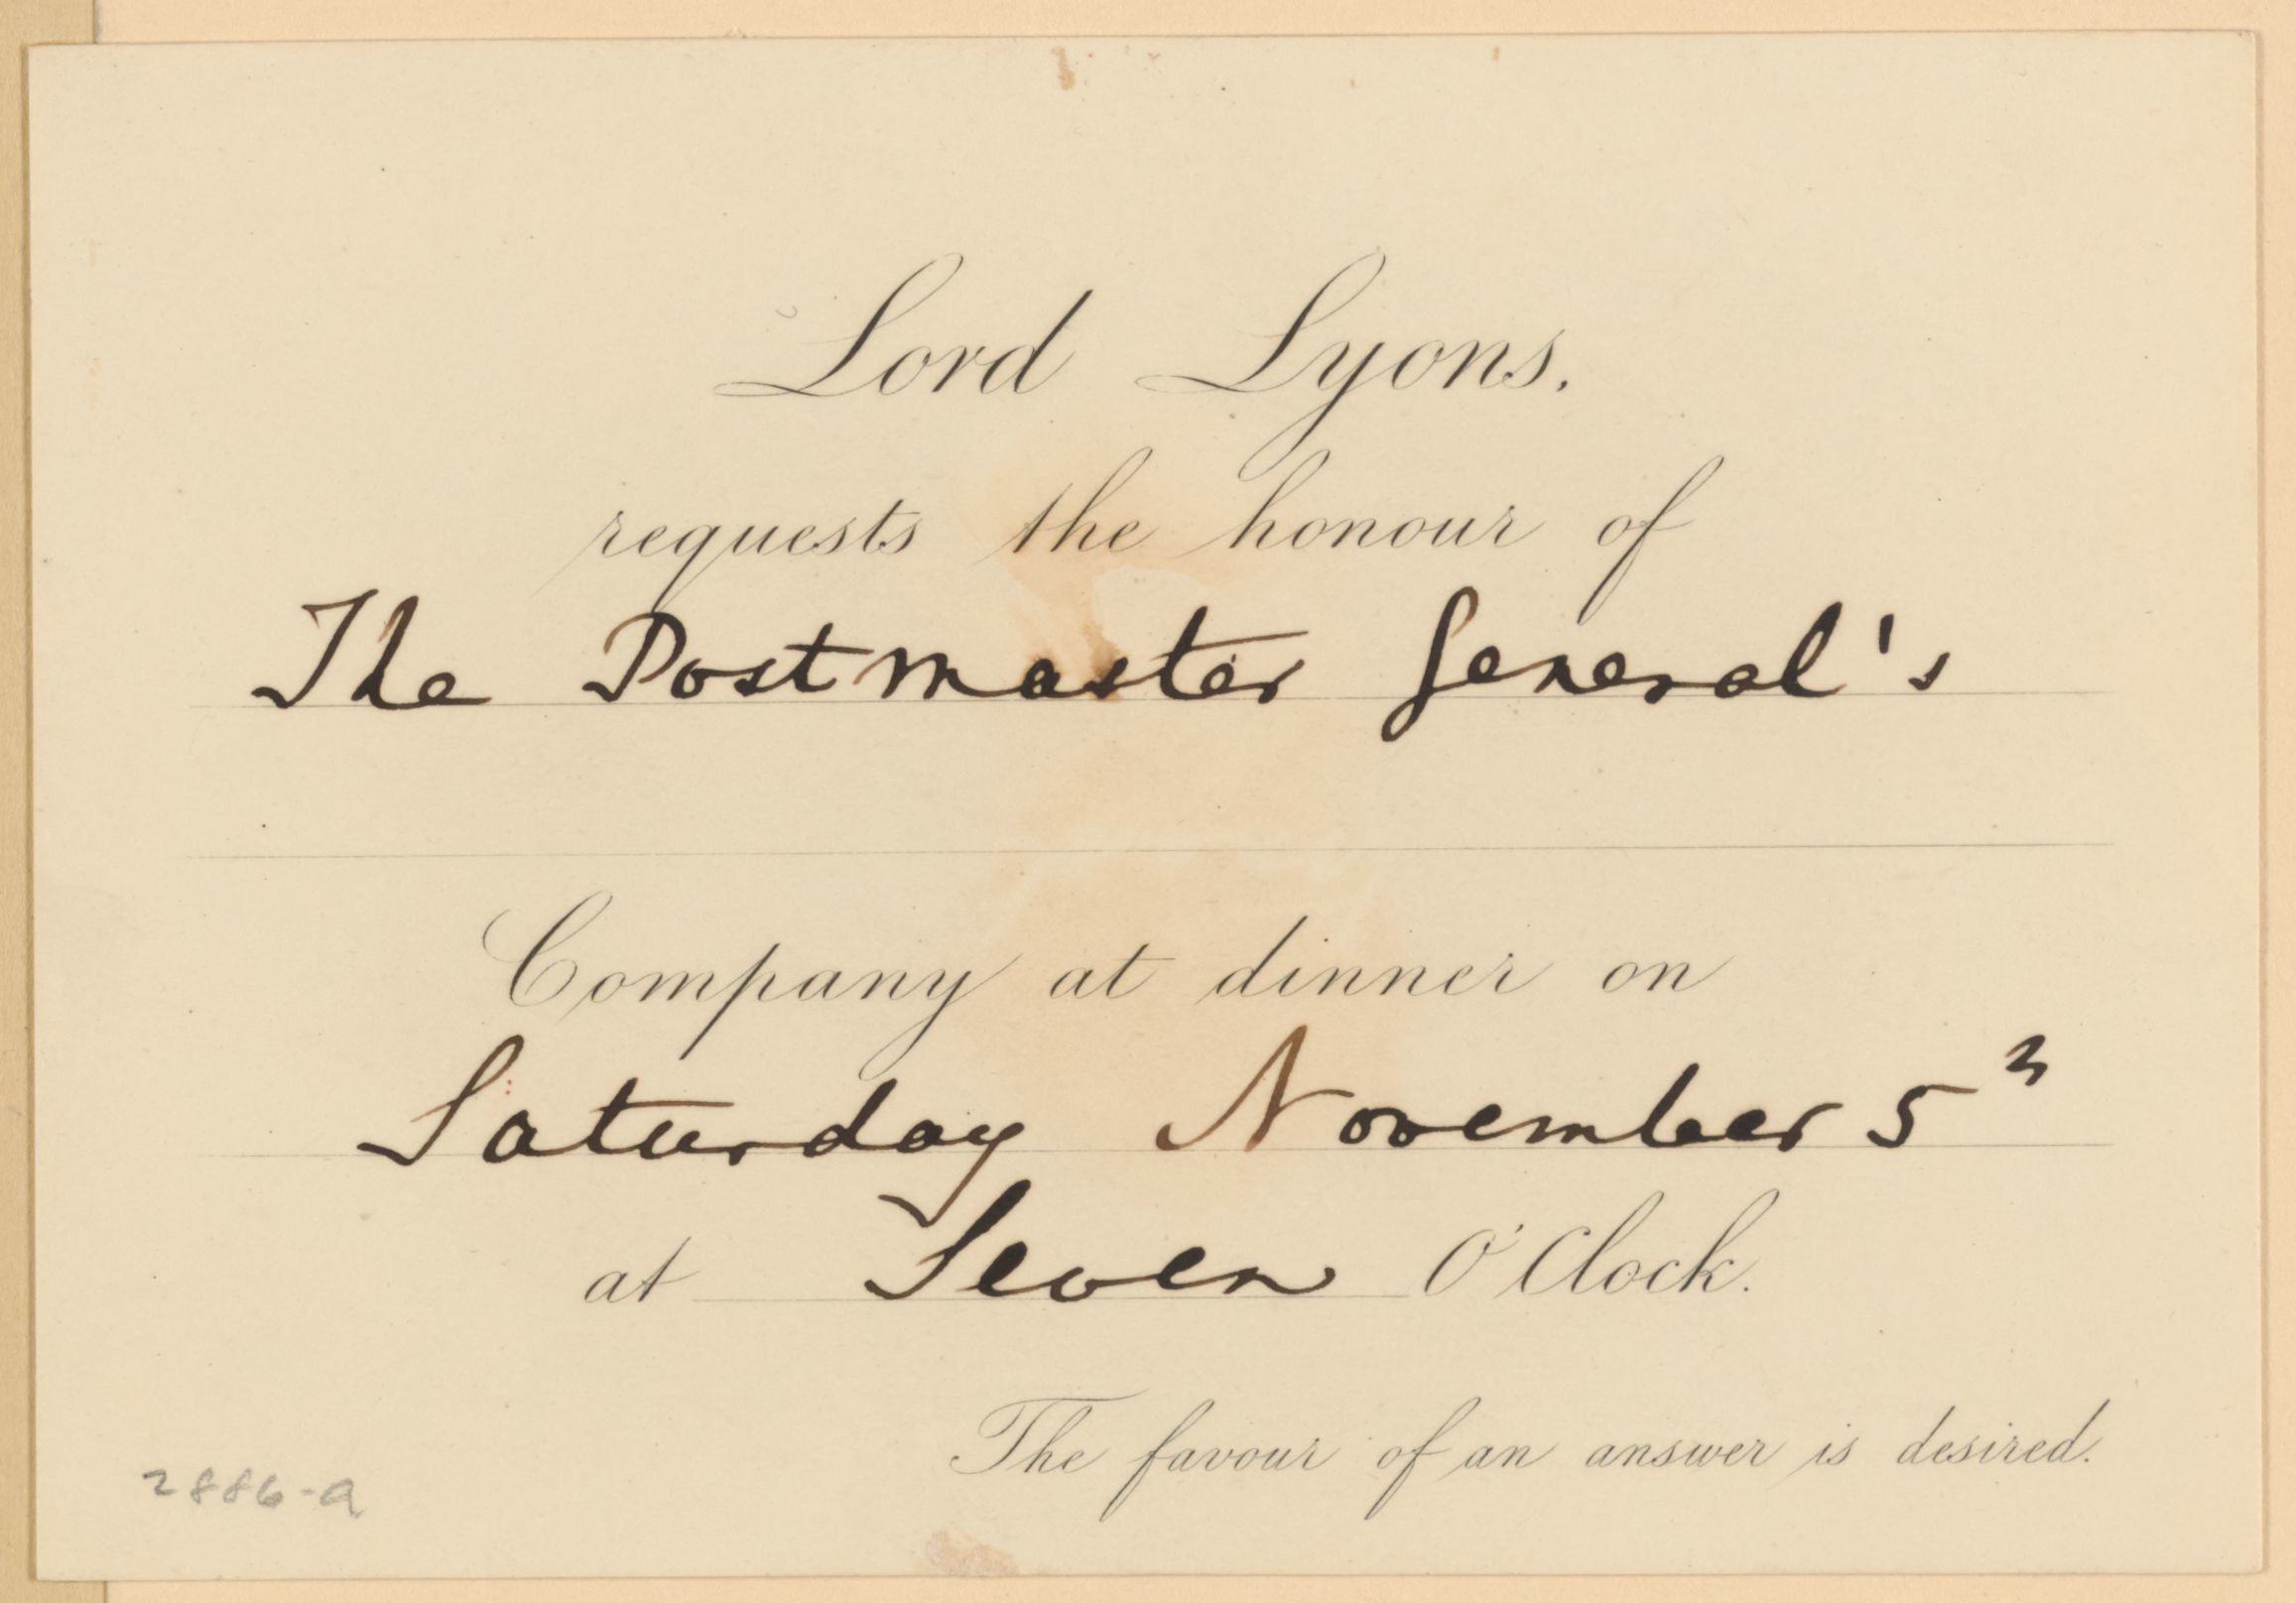 Lord Lyons.
requests the honour of
The Postmaster General's
Company at dinner on
Saturday November 5
at Seven O'Clock.
The favour of an answer is desired.
2886-a